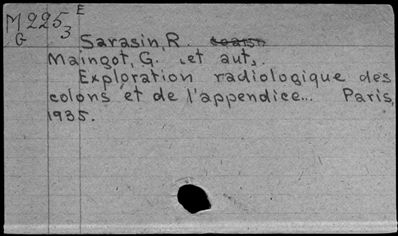 M225 E
G 3
Sarasin, R.
Maingot, G. et aut.
Exploration radiologique des
colons et de l'appendice... Paris,
1935.